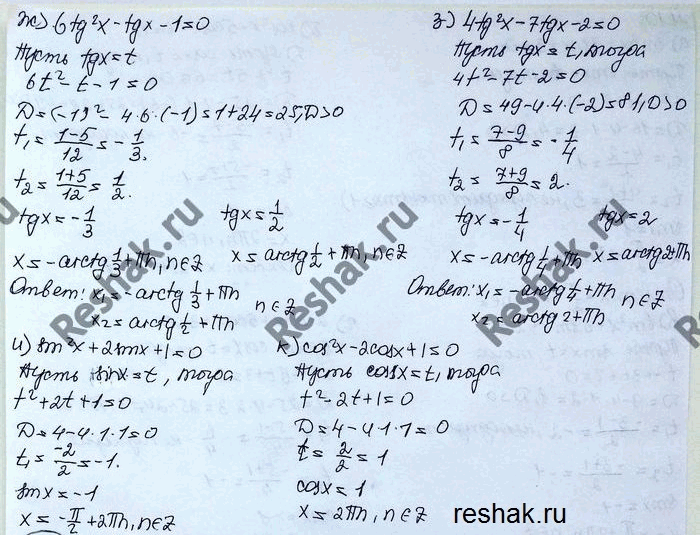 ж) 6tg²x - tgx - 1 = 0
Пусть tgx = t
6t² - t - 1 = 0
D = (-1)² - 4·6·(-1) = 1 + 24 = 25, D > 0
t₁ = (1-5)/12 = -1/3.
t₂ = (1+5)/12 = 1/2.
tgx = -1/3 tgx = 1/2
x = -arctg 1/3 + πn, n∈Z x = arctg 1/2 + πn, n∈Z
Ответ: x₁ = -arctg 1/3 + πn
x₂ = arctg 1/2 + πn n∈Z
з) 4tg²x - 7tgx - 2 = 0
Пусть tgx = t, тогда
4t² - 7t - 2 = 0
D = 49 - 4·4·(-2) = 81, D > 0
t₁ = (7-9)/8 = -1/4
t₂ = (7+9)/8 = 2.
tgx = -1/4 tgx = 2
x = -arctg 1/4 + πn x = arctg 2 + πn
Ответ: x₁ = -arctg 1/4 + πn
x₂ = arctg 2 + πn n∈Z
и) sin²x + 2sinx + 1 = 0
Пусть sinx = t, тогда
t² + 2t + 1 = 0
D = 4 - 4·1·1 = 0
t₁ = -2/2 = -1.
sinx = -1
x = -π/2 + 2πn, n∈Z
к) cos²x - 2cosx + 1 = 0
Пусть cosx = t, тогда
t² - 2t + 1 = 0
D = 4 - 4·1·1 = 0
t = 2/2 = 1
cosx = 1
x = 2πn, n∈Z
Reshak.ru
Reshak.ru
Reshak.ru
Reshak.ru
reshak.ru